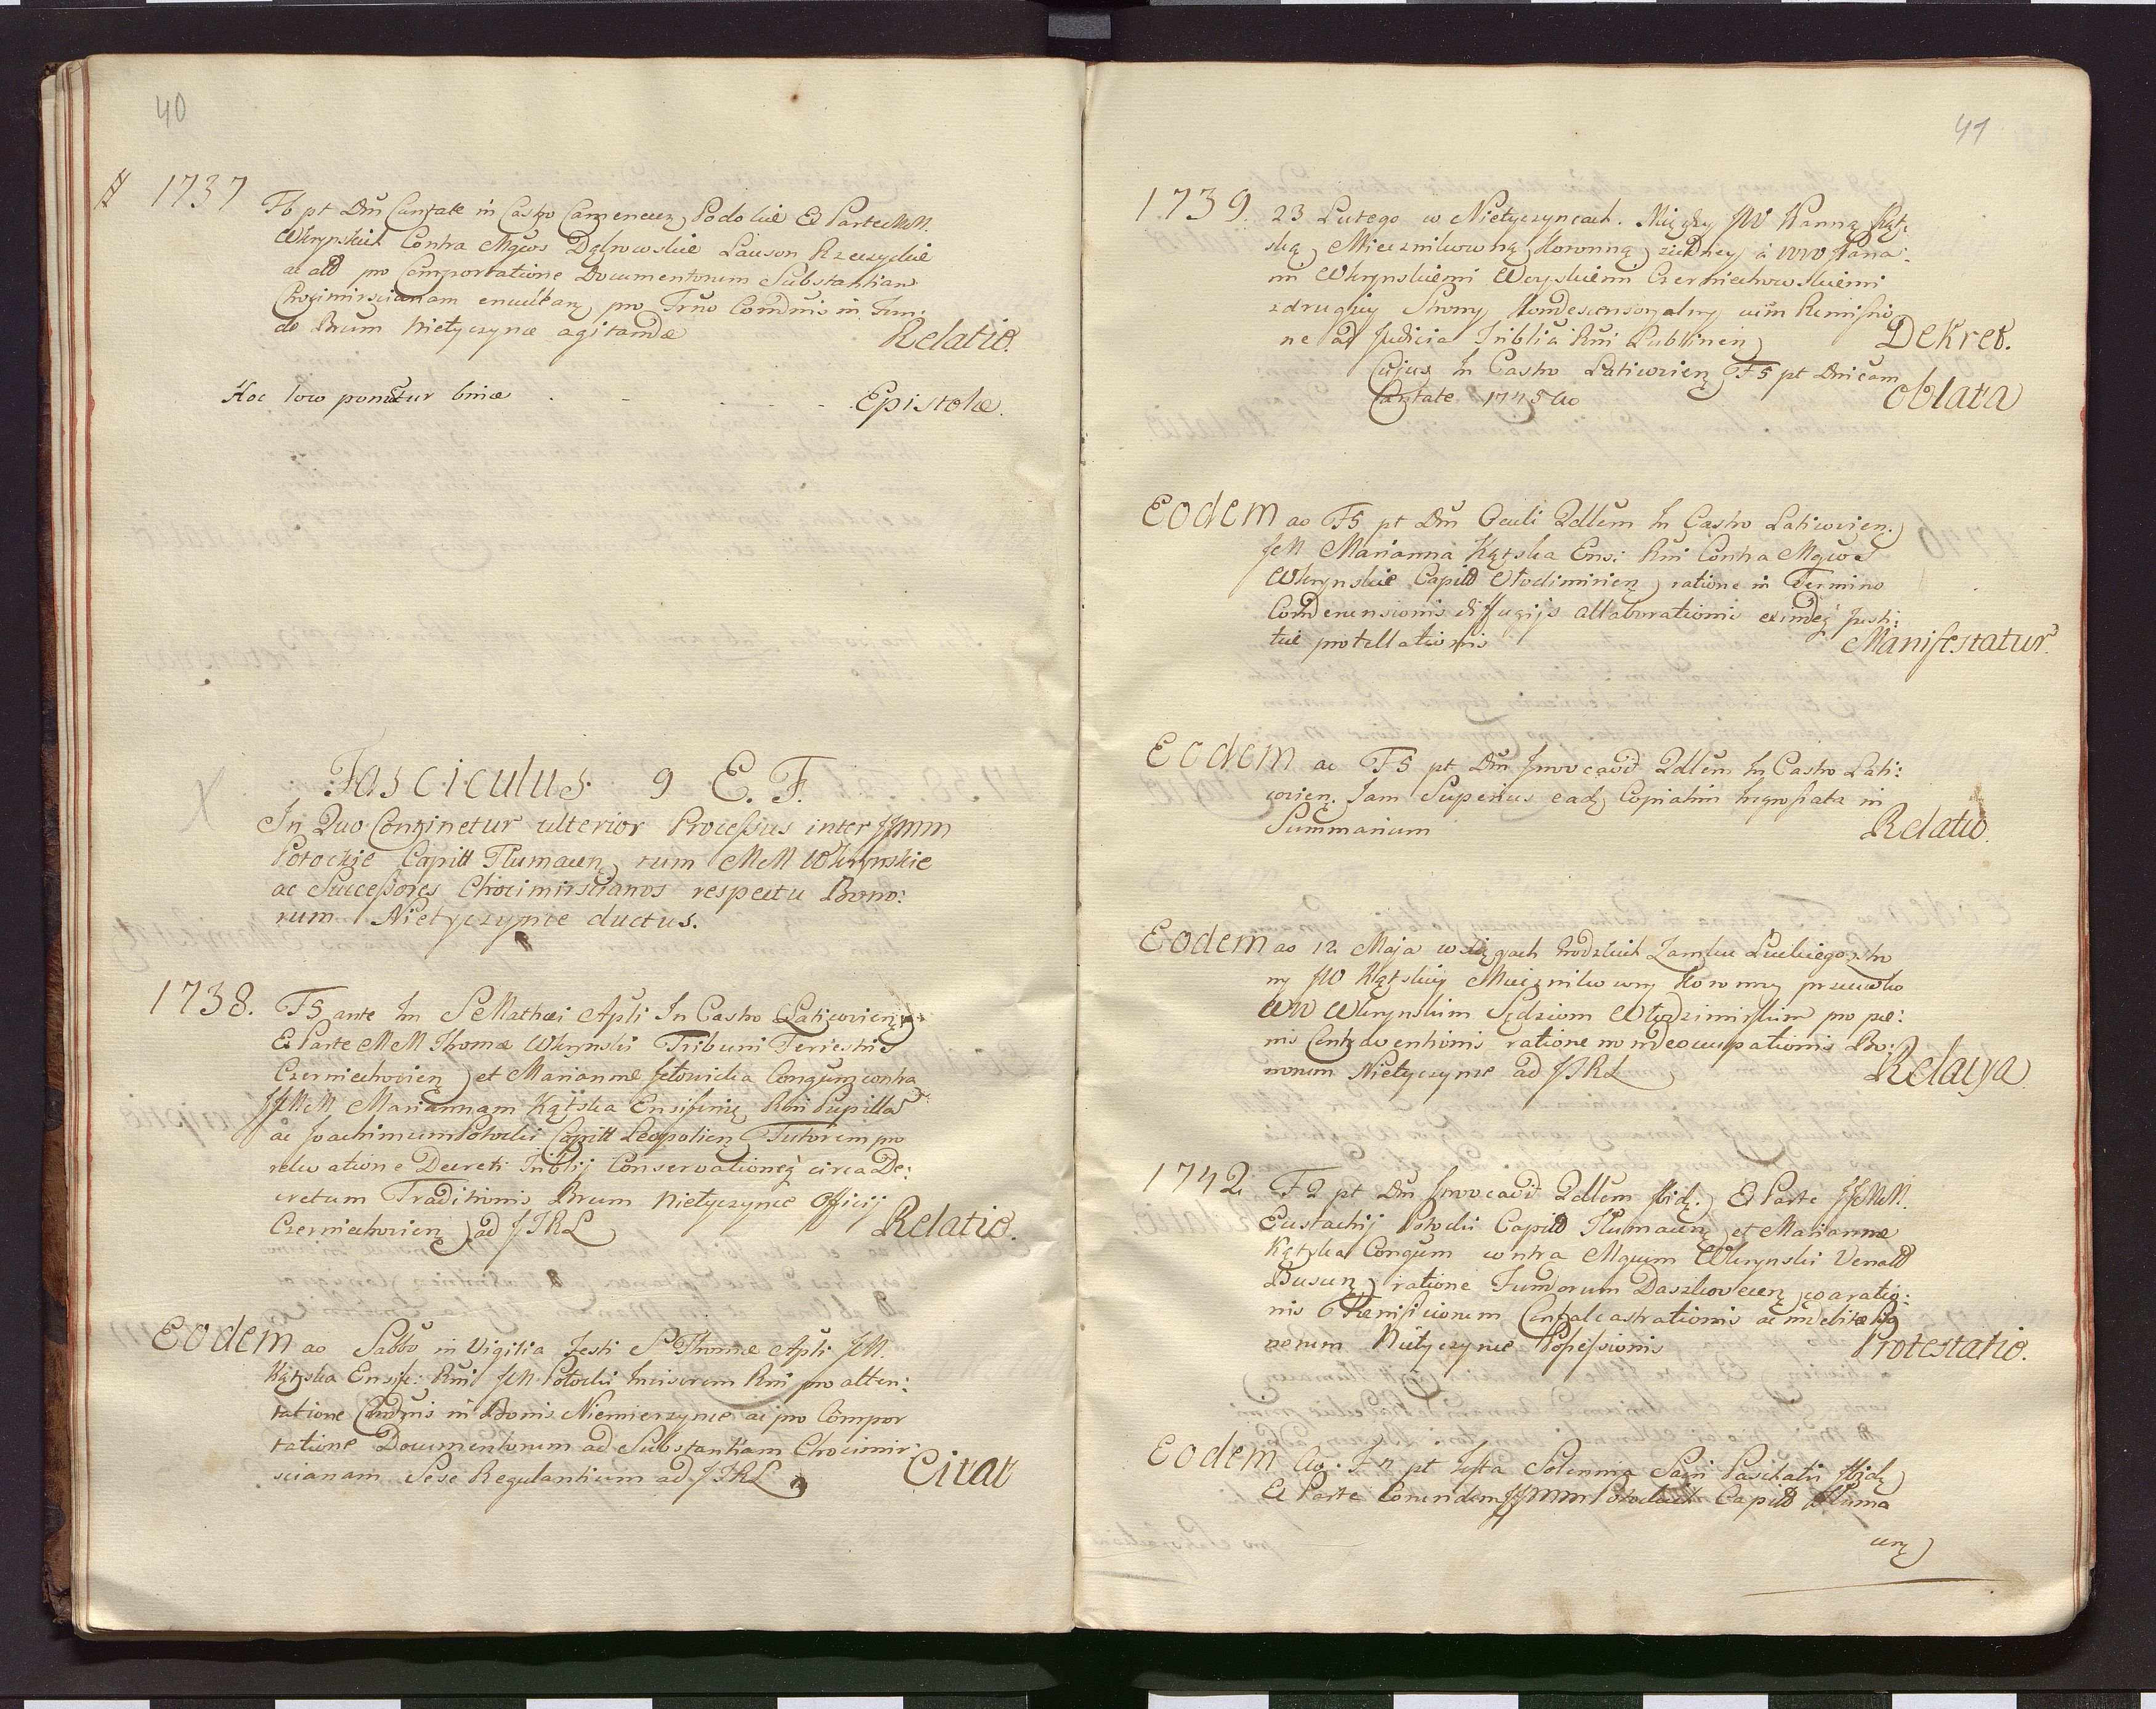 40
1737 F6 pt Dm Cantate in Castro Camenecen Podoliae Ex Parte MM.
Wkrynskich Contra Mgcos Dąbrowskie Lanson Rzeczyckie
ac alt pro Comportatione Documentorum Substantiam
Chocimirscianam pro Trno Condnis in Fun:
do Brum Nietyczyncae agitandae Relatio.
Hoc loco ponutur binae Epistolae.
Fasciculus 9 E. F.
In Quo Continetur ulterior Processus inter JJMM
Potockie Capitt Tlumacen, cum MM Wkrynskie
ac Successores Chocimirscianos respectu Bono:
rum Nietyczynce ductus.
1738. F5 ante Fm S Mathaei Apli In Castro Laticovien
Ex Parte MM Thomae Wkrynski Tribuni Terrestris
Czerniechovien et Mariannae Jełowicka Congum contra
JJMM Mariannam Kątska Ensiferidę Rni Pupillae
ac Joachimum Potocki Capitt Leopolien Tutorem pro
relevatione Decreti Tribtij Conservationeq circa De:
cretum Traditionis Brum Nietyczynce Officij
Czerniechovien ad JTRL Relatio.
Eodem ao Sabbo in Vigilia Festi S Thomae Apli JM.
Kątska Ensif: Rni JM Potocki Incisorem Rni pro atten:
tatione Condnis in Bonis Niemierzynce ac pro Compor
tatione Documentorum ad Substantiam Chocimir
scianam Sese Regulantium ad JTRL Citat
41
1739. 23 Lutego w Nietyczyncach. Między JW Panną Kąt:
ską Miecznikowną Koronną z iedney a WW Pana:
mi Wkrynskiemi Woyskiemi Czerniechowskiemi
z drugiey Strony Kondescensoyalny cum Remissio
ne ad Judicia Tribtia Rni Lublinen Dekret.
Cujus In Castro Laticovien F5 pt Dnicam
Cantate 1745 Ao Oblata
Eodem ao F5 pt Dm Oculi Qdlem In Castro Laticovien.
JM Marianna Kątska Ens: Rni Contra Mgcos
Wkrynskie Capitt Wlodimirien ratione in Termino
Condescensionis diffugijs allaborationis exindeq Justi:
tiae protellationis Manifestatur.
Eodem ao F5 pt Dm Invocavit Qdlem In Castro Lati:
covien. Jam Superius eadq Copiatim Ingrossata in
Summarium Relatio.
Eodem ao 12 Maja w Xięgach Grodzkich Zamku Łuckiego z stro
ny JW Kątskiey Miecznikowny Koronney przeciwko
WW Wkrynskim Sędziom Włodzimirskim pro pae:
nis Contraventionis ratione non deoccupationis Bo:
norum Nietyczynce ad JTRL Relacya
1742. F2 pt Dm Invocavit Qdlem Ibid: Ex Parte JJMM.
Eustachij Potocki Capitt Tlumacen et Mariannae
Kątska Congum contra Mgcum Wkrynski Venatt
Buscen ratione Fundorum Daszkovecen, coaratio:
nis ac indebitae Bo
norum Nietyczynce Possessionis Protestatio.
Eodem Ao. F2 pt Festa Solennia Scmi Paschatis Ibidę
Ex Parte Eorundem JJMM Potockich Capitt Tluma
cen